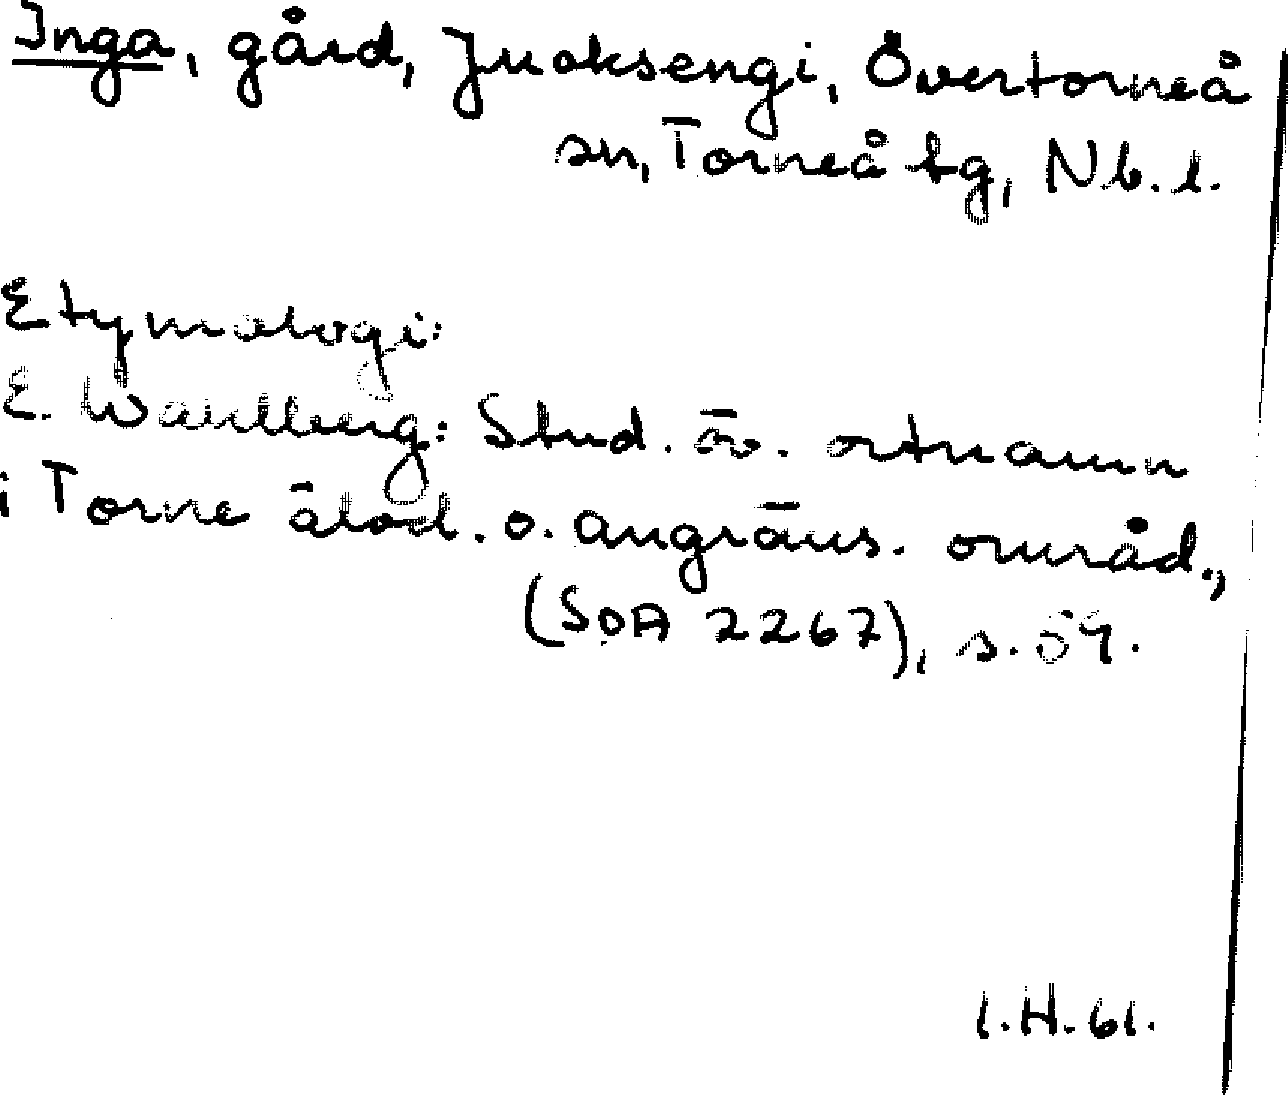 Inga, gård, Juoksengi, Övertorneå
sn, Torneå tg, Nb. l.
Etymologi:
E. Wahlberg: Stud. öv. ortnamn
i Torne älvd. o. angräns. områd.,
(SOA 2267), s. 59.
I.H. 61.